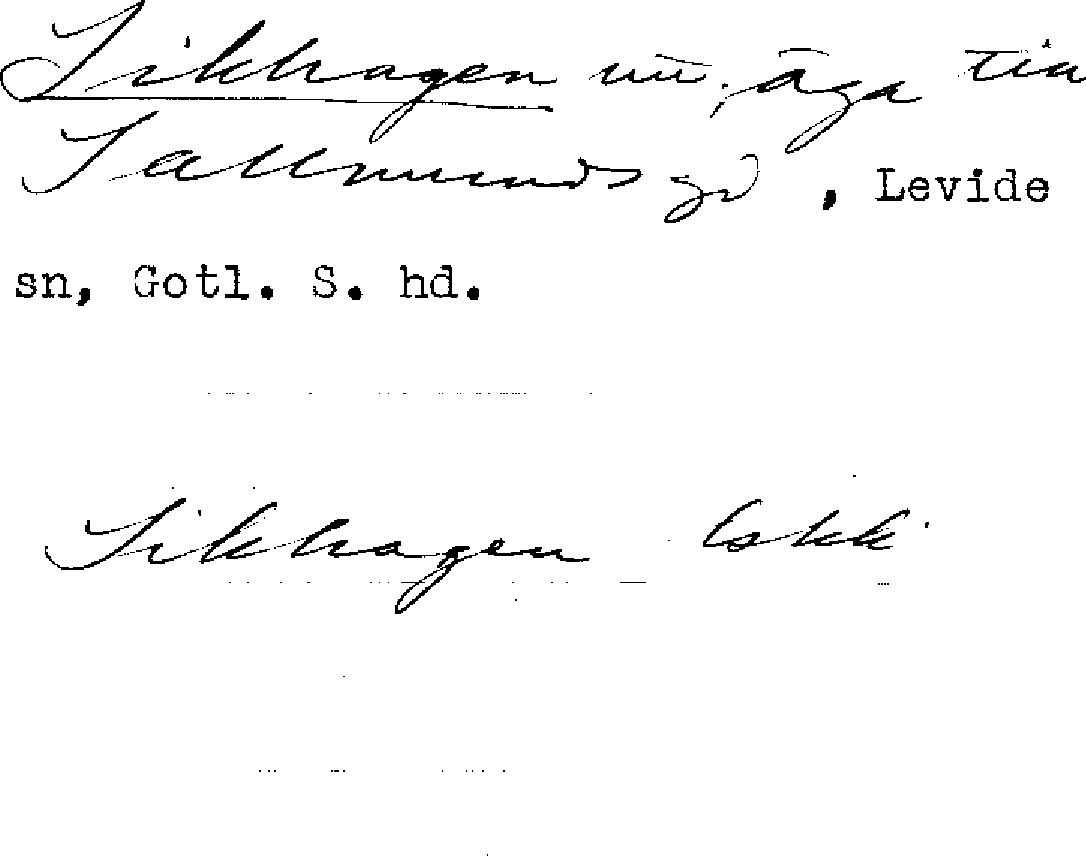 Sikhagen nu, äga till
Sallmunds gd, Levide
sn, Gotl. S. hd.
Sikhagen Eskk